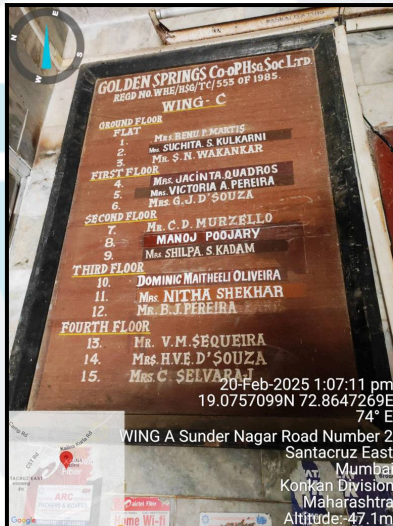 GOLDEN SPRINGS CO-OP. HSG. SOC. LTD.
REGD NO. WHE/HSG/TC/555 OF 1985.
WING - C
GROUND FLOOR
FLAT
1. MRS. RENU. P. MARTIS
2. MRS. SUCHITA. S. KULKARNI
3. MR. S. N. WAKANKAR
FIRST FLOOR
4. MRS. JACINTA. QUADROS
5. MRS. VICTORIA A. PEREIRA
6. MRS. G. J. D'SOUZA
SECOND FLOOR
7. MR. C. D. MURZELLO
8. MANOJ POOJARY
9. MRS. SHILPA. S. KADAM
THIRD FLOOR
10. DOMINIC MAITHEELI OLIVEIRA
11. MRS. NITHA SHEKHAR
12. MR. B. J. PEREIRA
FOURTH FLOOR
13. MR. V. M. SEQUEIRA
14. MRS. H. V. E. D'SOUZA
15. MRS. C. SELVARAJ
20-Feb-2025 1:07:11 pm
19.0757099N 72.8647269E
74° E
WING A Sunder Nagar Road Number 2
Santacruz East
Mumbai
Konkan Division
Maharashtra
Altitude:-47.1m
N
E
S
W
Google
ARC
airtel Fiber
Home Wi-fi